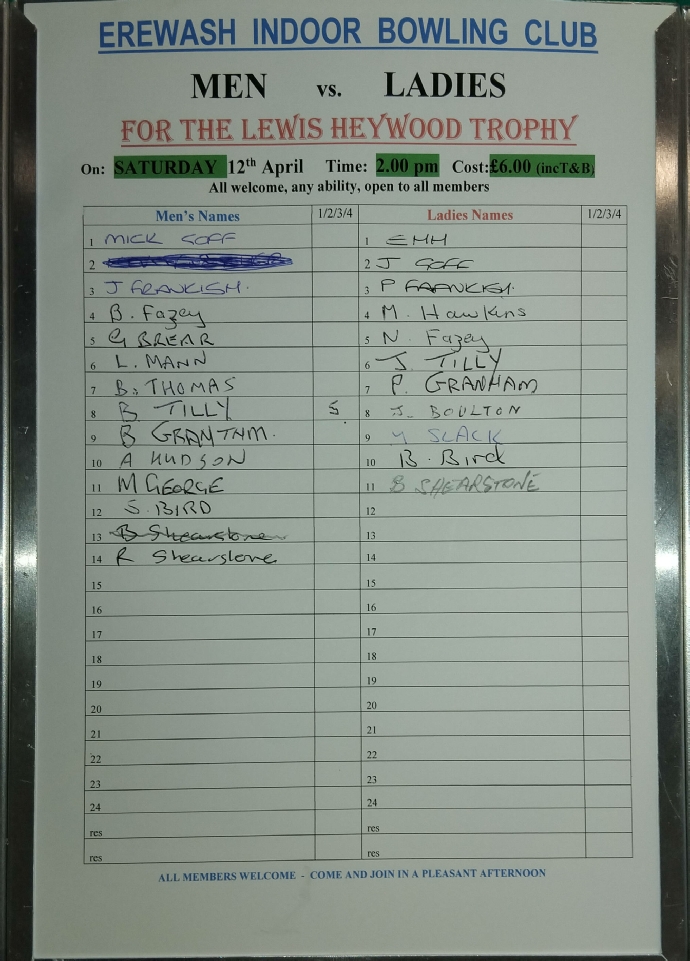 EREWASH INDOOR BOWLING CLUB
MEN vs. LADIES
FOR THE LEWIS HEYWOOD TROPHY
On: SATURDAY 12th April Time: 2.00 pm Cost:£6.00 (incT&B)
All welcome, any ability, open to all members
Men's Names 1/2/3/4 Ladies Names 1/2/3/4
1 MICK GOFF 1 EMH
2 2 J GOFF
3 J FRANKISH. 3 P FRANKISH.
4 B. Fazey 4 M. Hawkins
5 G BREAR 5 N. Fazey
6 L. MANN 6 J. TILLY
7 B. THOMAS 7 P. GRANHAM
8 B TILLY S 8 J. BOULTON
9 B GRANTHM. 9 SLACK
10 A HUDSON 10 B. Bird
11 M GEORGE 11 B SHEARSTONE
12 S. BIRD 12
13 B Shearstone 13
14 R Shearstone 14
15 15
16 16
17 17
18 18
19 19
20 20
21 21
22 22
23 23
24 24
res res
res res
ALL MEMBERS WELCOME - COME AND JOIN IN A PLEASANT AFTERNOON